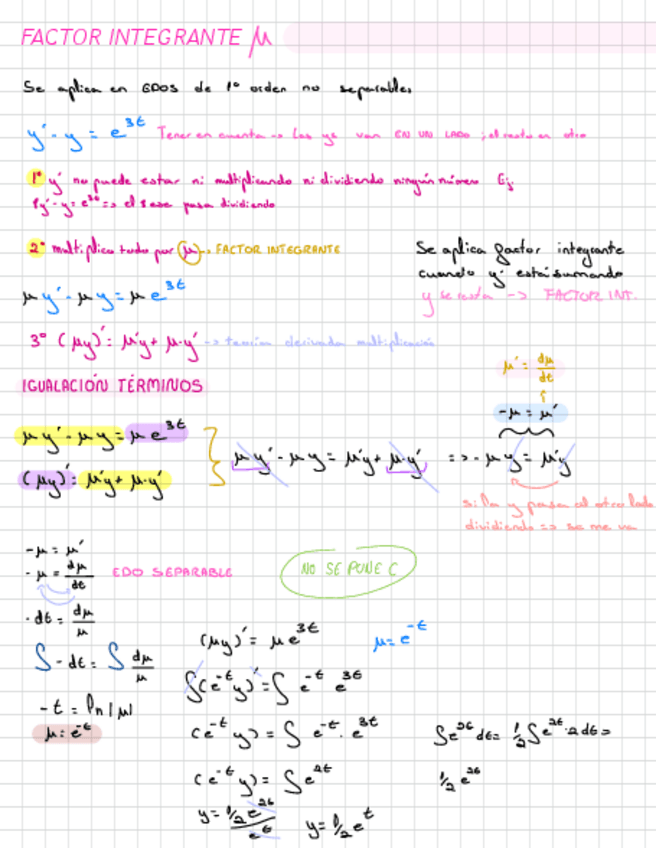 FACTOR INTEGRANTE μ
Se aplica en EDOS de 1º orden no separables
y' - y = e^3t Tener en cuenta -> Las ys van EN UN LADO ; el resto en otro
1º y' no puede estar ni multiplicando ni dividiendo ningún número Ej
y' - y = e^3t => el 8 ese pasa dividiendo
2º multiplico todo por μ -> FACTOR INTEGRANTE
Se aplica factor integrante
cuando y' está sumando
y se resta -> FACTOR INT.
μ y' - μ y = μ e^3t
3º (μy)' = μ'y + μ·y' -> derivada multiplicación
μ' = dμ/dt
IGUALACIÓN TÉRMINOS
-μ = μ'
μ y' - μ y = μ e^3t
(μy)' = μ'y + μ·y'
μ y' - μ y = μ'y + μ·y' => - μ y = μ'y
si la y pasa al otro lado
dividiendo => se me va
-μ = μ'
-μ = dμ/dt EDO SEPARABLE
NO SE PONE C
-dt = dμ/μ
∫ -dt = ∫ dμ/μ
-t = ln|μ|
μ = e^-t
(μy)' = μ e^3t μ = e^-t
∫(e^-t y)' = ∫ e^-t e^3t
(e^-t y) = ∫ e^-t · e^3t
∫e^2t dt = 1/2 ∫e^2t · 2 dt =
(e^-t y) = ∫e^2t
1/2 e^2t
y = 1/2 e^2t / e^t y = 1/2 e^t